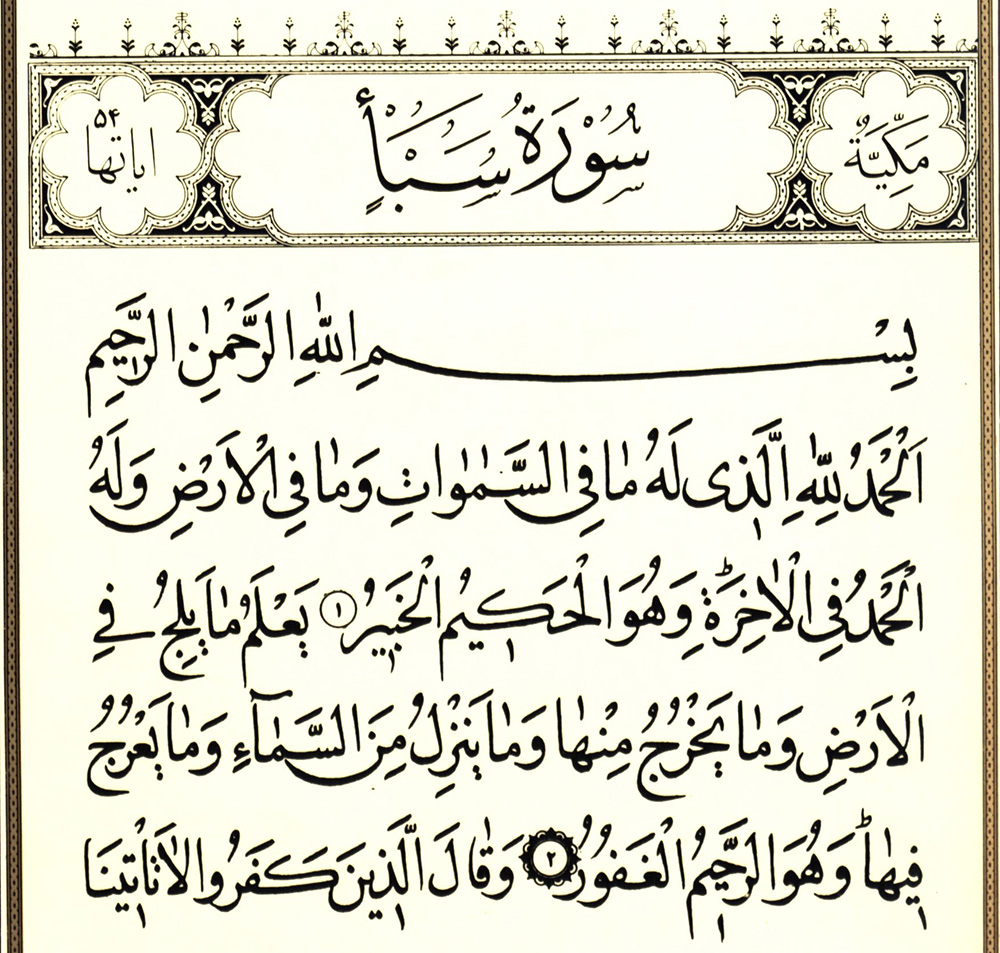 مَكِّيَّةٌ سُوْرَةُ سَبَأٍ اياتها ۵۴
بِسْمِ اللّٰهِ الرَّحْمٰنِ الرَّحٖيمِ
اَلْحَمْدُ لِلّٰهِ الَّذٖى لَهُ مٰا فِى السَّمٰوٰاتِ وَ مٰا فِى الْاَرْضِ وَ لَهُ
الْحَمْدُ فِى الْاٰخِرَةِ وَ هُوَ الْحَكٖيمُ الْخَبٖيرُ ۱ يَعْلَمُ مٰا يَلِجُ فِى
الْاَرْضِ وَ مٰا يَخْرُجُ مِنْهٰا وَ مٰا يَنْزِلُ مِنَ السَّمٰاءِ وَ مٰا يَعْرُجُ
فٖيهٰا وَ هُوَ الرَّحٖيمُ الْغَفُورُ ۲ وَ قٰالَ الَّذٖينَ كَفَرُوا لاٰ تَأْتٖينَا